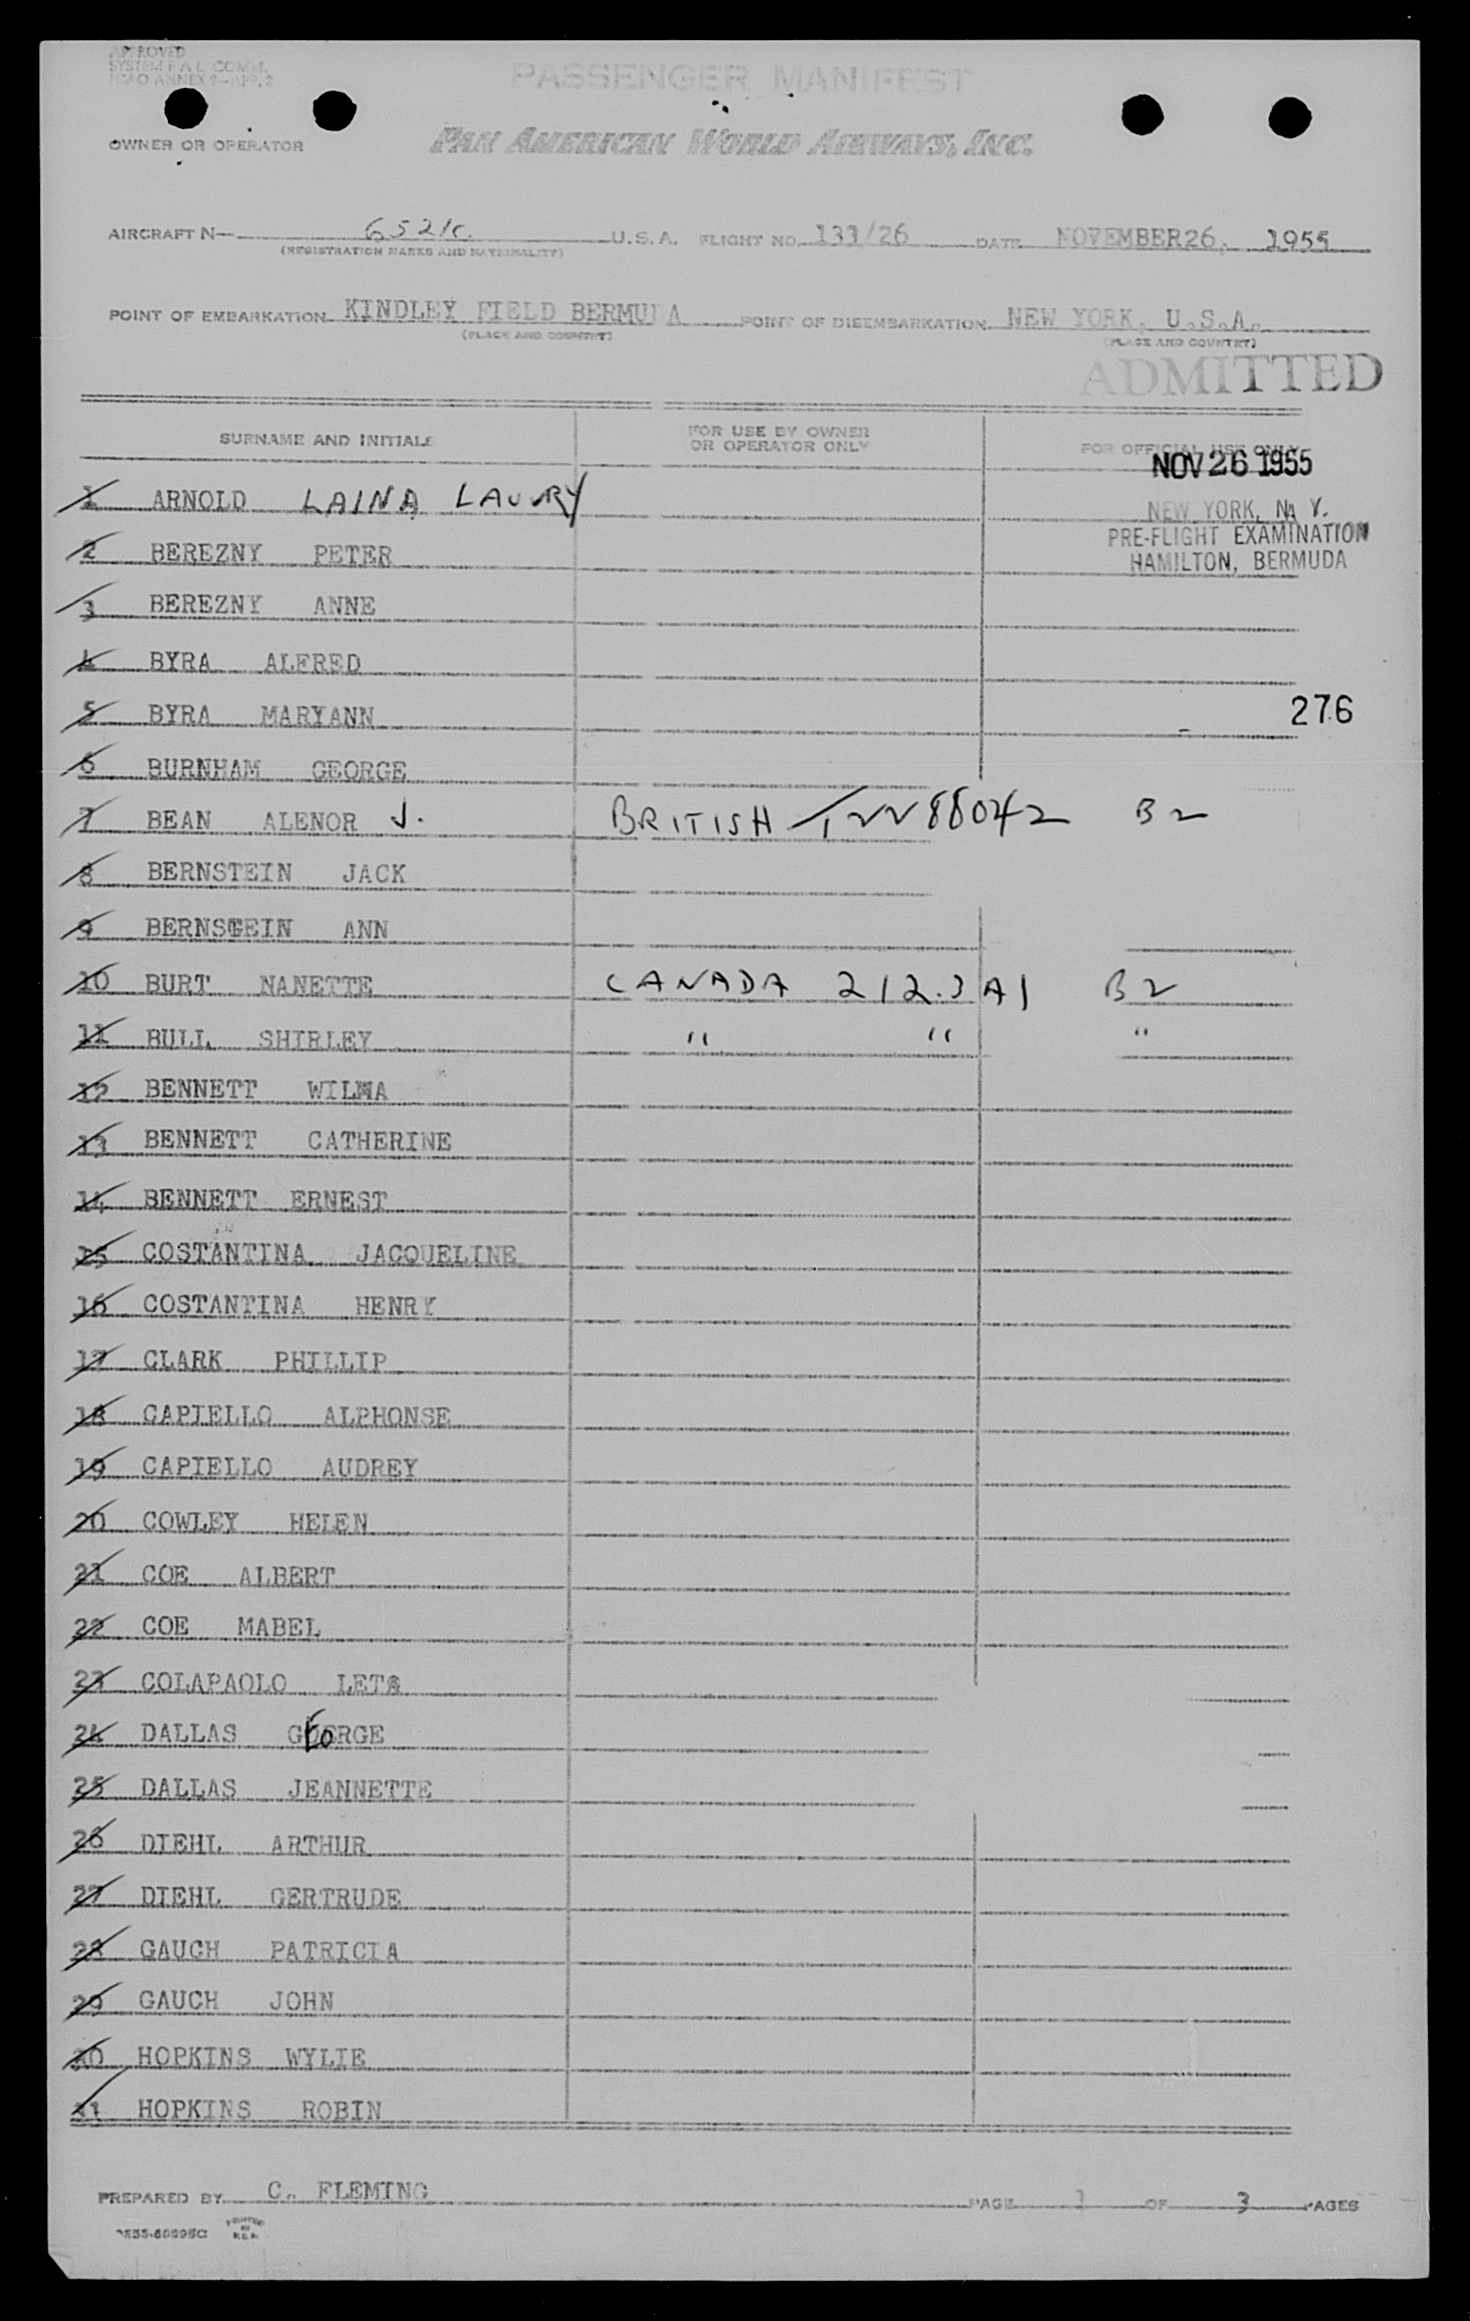 APPROVED
SYSTEM F A L COMM.
ICAO ANNEX 9-APP. 2
PASSENGER MANIFEST
OWNER OR OPERATOR PAN AMERICAN WORLD AIRWAYS, INC.
AIRCRAFT N- 6521C U.S.A. FLIGHT NO. 131/26 DATE NOVEMBER 26, 1955
(REGISTRATION MARKS AND NATIONALITY)
POINT OF EMBARKATION KINDLEY FIELD BERMUDA POINT OF DISEMBARKATION NEW YORK, U.S.A.
(PLACE AND COUNTRY) (PLACE AND COUNTRY)
ADMITTED
SURNAME AND INITIALS FOR USE BY OWNER OR OPERATOR ONLY FOR OFFICIAL USE ONLY
NOV 26 1955
NEW YORK, N. Y.
PRE-FLIGHT EXAMINATION
HAMILTON, BERMUDA
1 ARNOLD LAINA LAURY
2 BEREZNY PETER
3 BEREZNY ANNE
4 BYRA ALFRED
5 BYRA MARYANN 276
6 BURNHAM GEORGE
7 BEAN ALENOR J. BRITISH 88042 B2
8 BERNSTEIN JACK
9 BERNSTEIN ANN
10 BURT NANETTE CANADA 212.3A1 B2
11 BULL SHIRLEY " " "
12 BENNETT WILMA
13 BENNETT CATHERINE
14 BENNETT ERNEST
15 COSTANTINA JACQUELINE
16 COSTANTINA HENRY
17 CLARK PHILLIP
18 CAPIELLO ALPHONSE
19 CAPIELLO AUDREY
20 COWLEY HELEN
21 COE ALBERT
22 COE MABEL
23 COLAPAOLO LETA
24 DALLAS GEORGE
25 DALLAS JEANNETTE
26 DIEHL ARTHUR
27 DIEHL GERTRUDE
28 GAUCH PATRICIA
29 GAUCH JOHN
30 HOPKINS WYLIE
31 HOPKINS ROBIN
PREPARED BY C. FLEMING PAGE 1 OF 3 PAGES
PRINTED IN U.S.A.